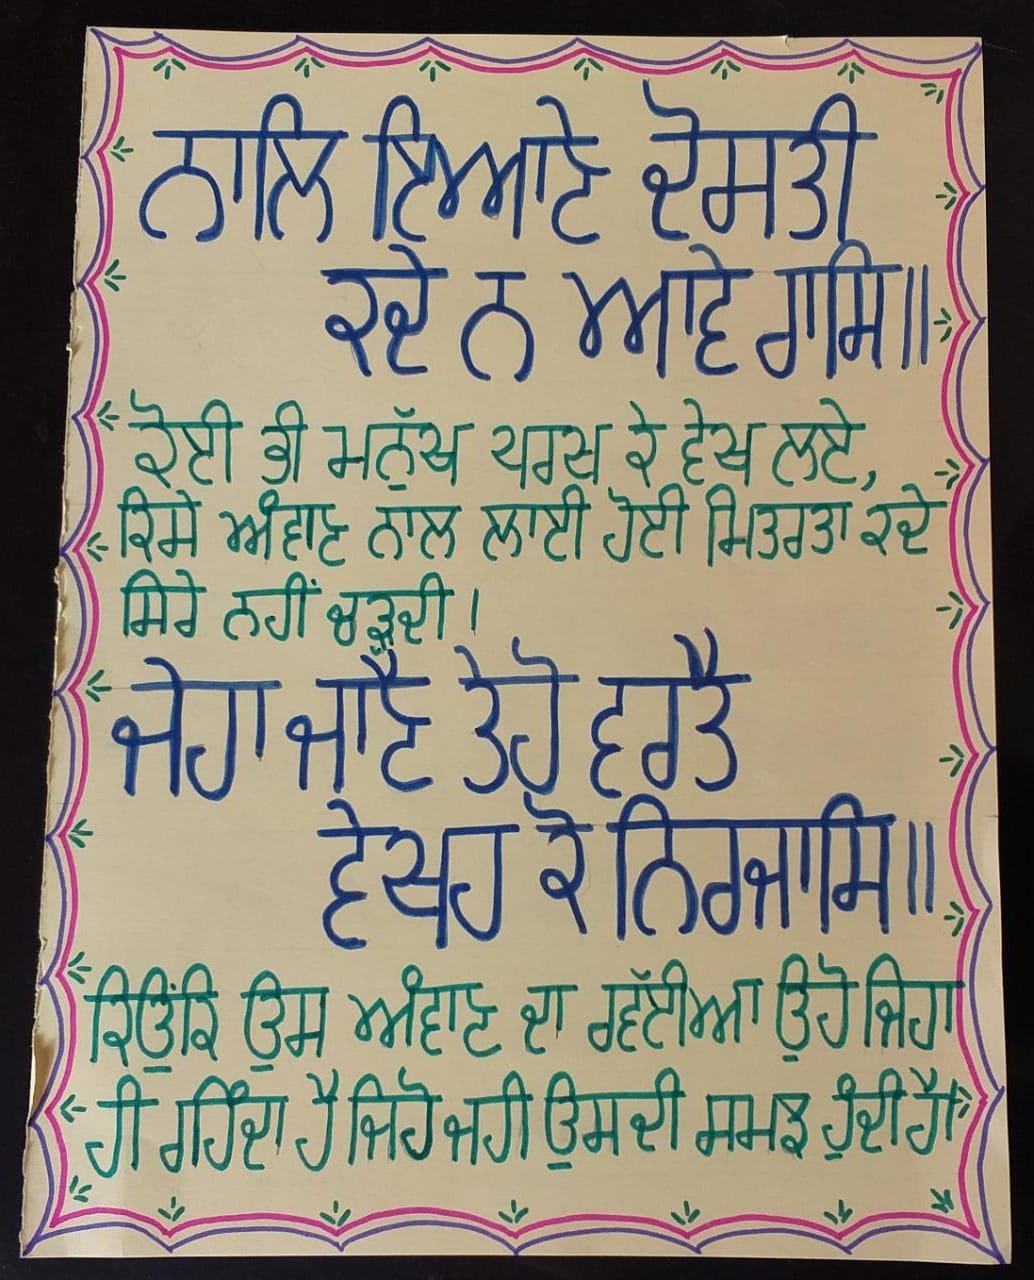 ਨਾਲਿ ਇਆਣੇ ਦੋਸਤੀ
ਕਦੇ ਨ ਆਵੇ ਰਾਸਿ॥
ਕੋਈ ਭੀ ਮਨੁੱਖ ਪਰਖ ਕੇ ਵੇਖ ਲਏ,
ਕਿਸੇ ਅੰਞਾਣ ਨਾਲ ਲਾਈ ਹੋਈ ਮਿਤਰਤਾ ਕਦੇ
ਸਿਰੇ ਨਹੀਂ ਚੜ੍ਹਦੀ।
ਜੇਹਾ ਜਾਣੈ ਤੇਹੋ ਵਰਤੈ
ਵੇਖਹੁ ਕੋ ਨਿਰਜਾਸਿ॥
ਕਿਉਂਕਿ ਉਸ ਅੰਞਾਣ ਦਾ ਰਵੱਈਆ ਉਹੋ ਜਿਹਾ
ਹੀ ਰਹਿੰਦਾ ਹੈ ਜਿਹੋ ਜਹੀ ਉਸਦੀ ਸਮਝ ਹੁੰਦੀ ਹੈ।